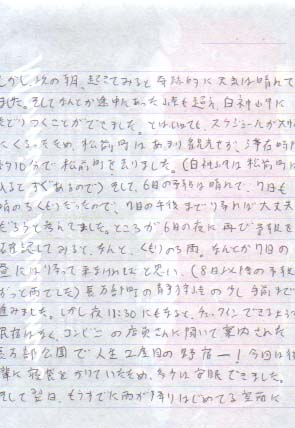 しかし次の朝、起きてみると奇跡的に天気は晴れて
ました。そしてなんとか途中あった峠を超え、白神岬に
たどりつくことができました。とはいっても、スケジュールが
にくるったため、松前町はあまり観光せず、滞在時間
約10分で松前町を去りました。(白神岬は松前町に
入るとすぐあるので)そして、6日の予報は晴れで、7日も
のちくもりだったので、7日の午後までに すれば大丈夫
だろうと考えてました。ところが6日の夜に再び予報を
確認してみると、なんと、くもりのち雨。なんとか7日の
昼には 着かなければと思い、(8日以降の予報
ずっと雨でした)長万部町の 少し手前まで
進みました。しかし夜11:30にもなると、チェックインできるような
民宿はなく、コンビニの店員さんに聞いて案内された
長万部公園で人生2度目の野宿ー!今日は
寝袋をかりていたため、 安眠できました。
そして翌日、もうすでに雨が降りはじめてる